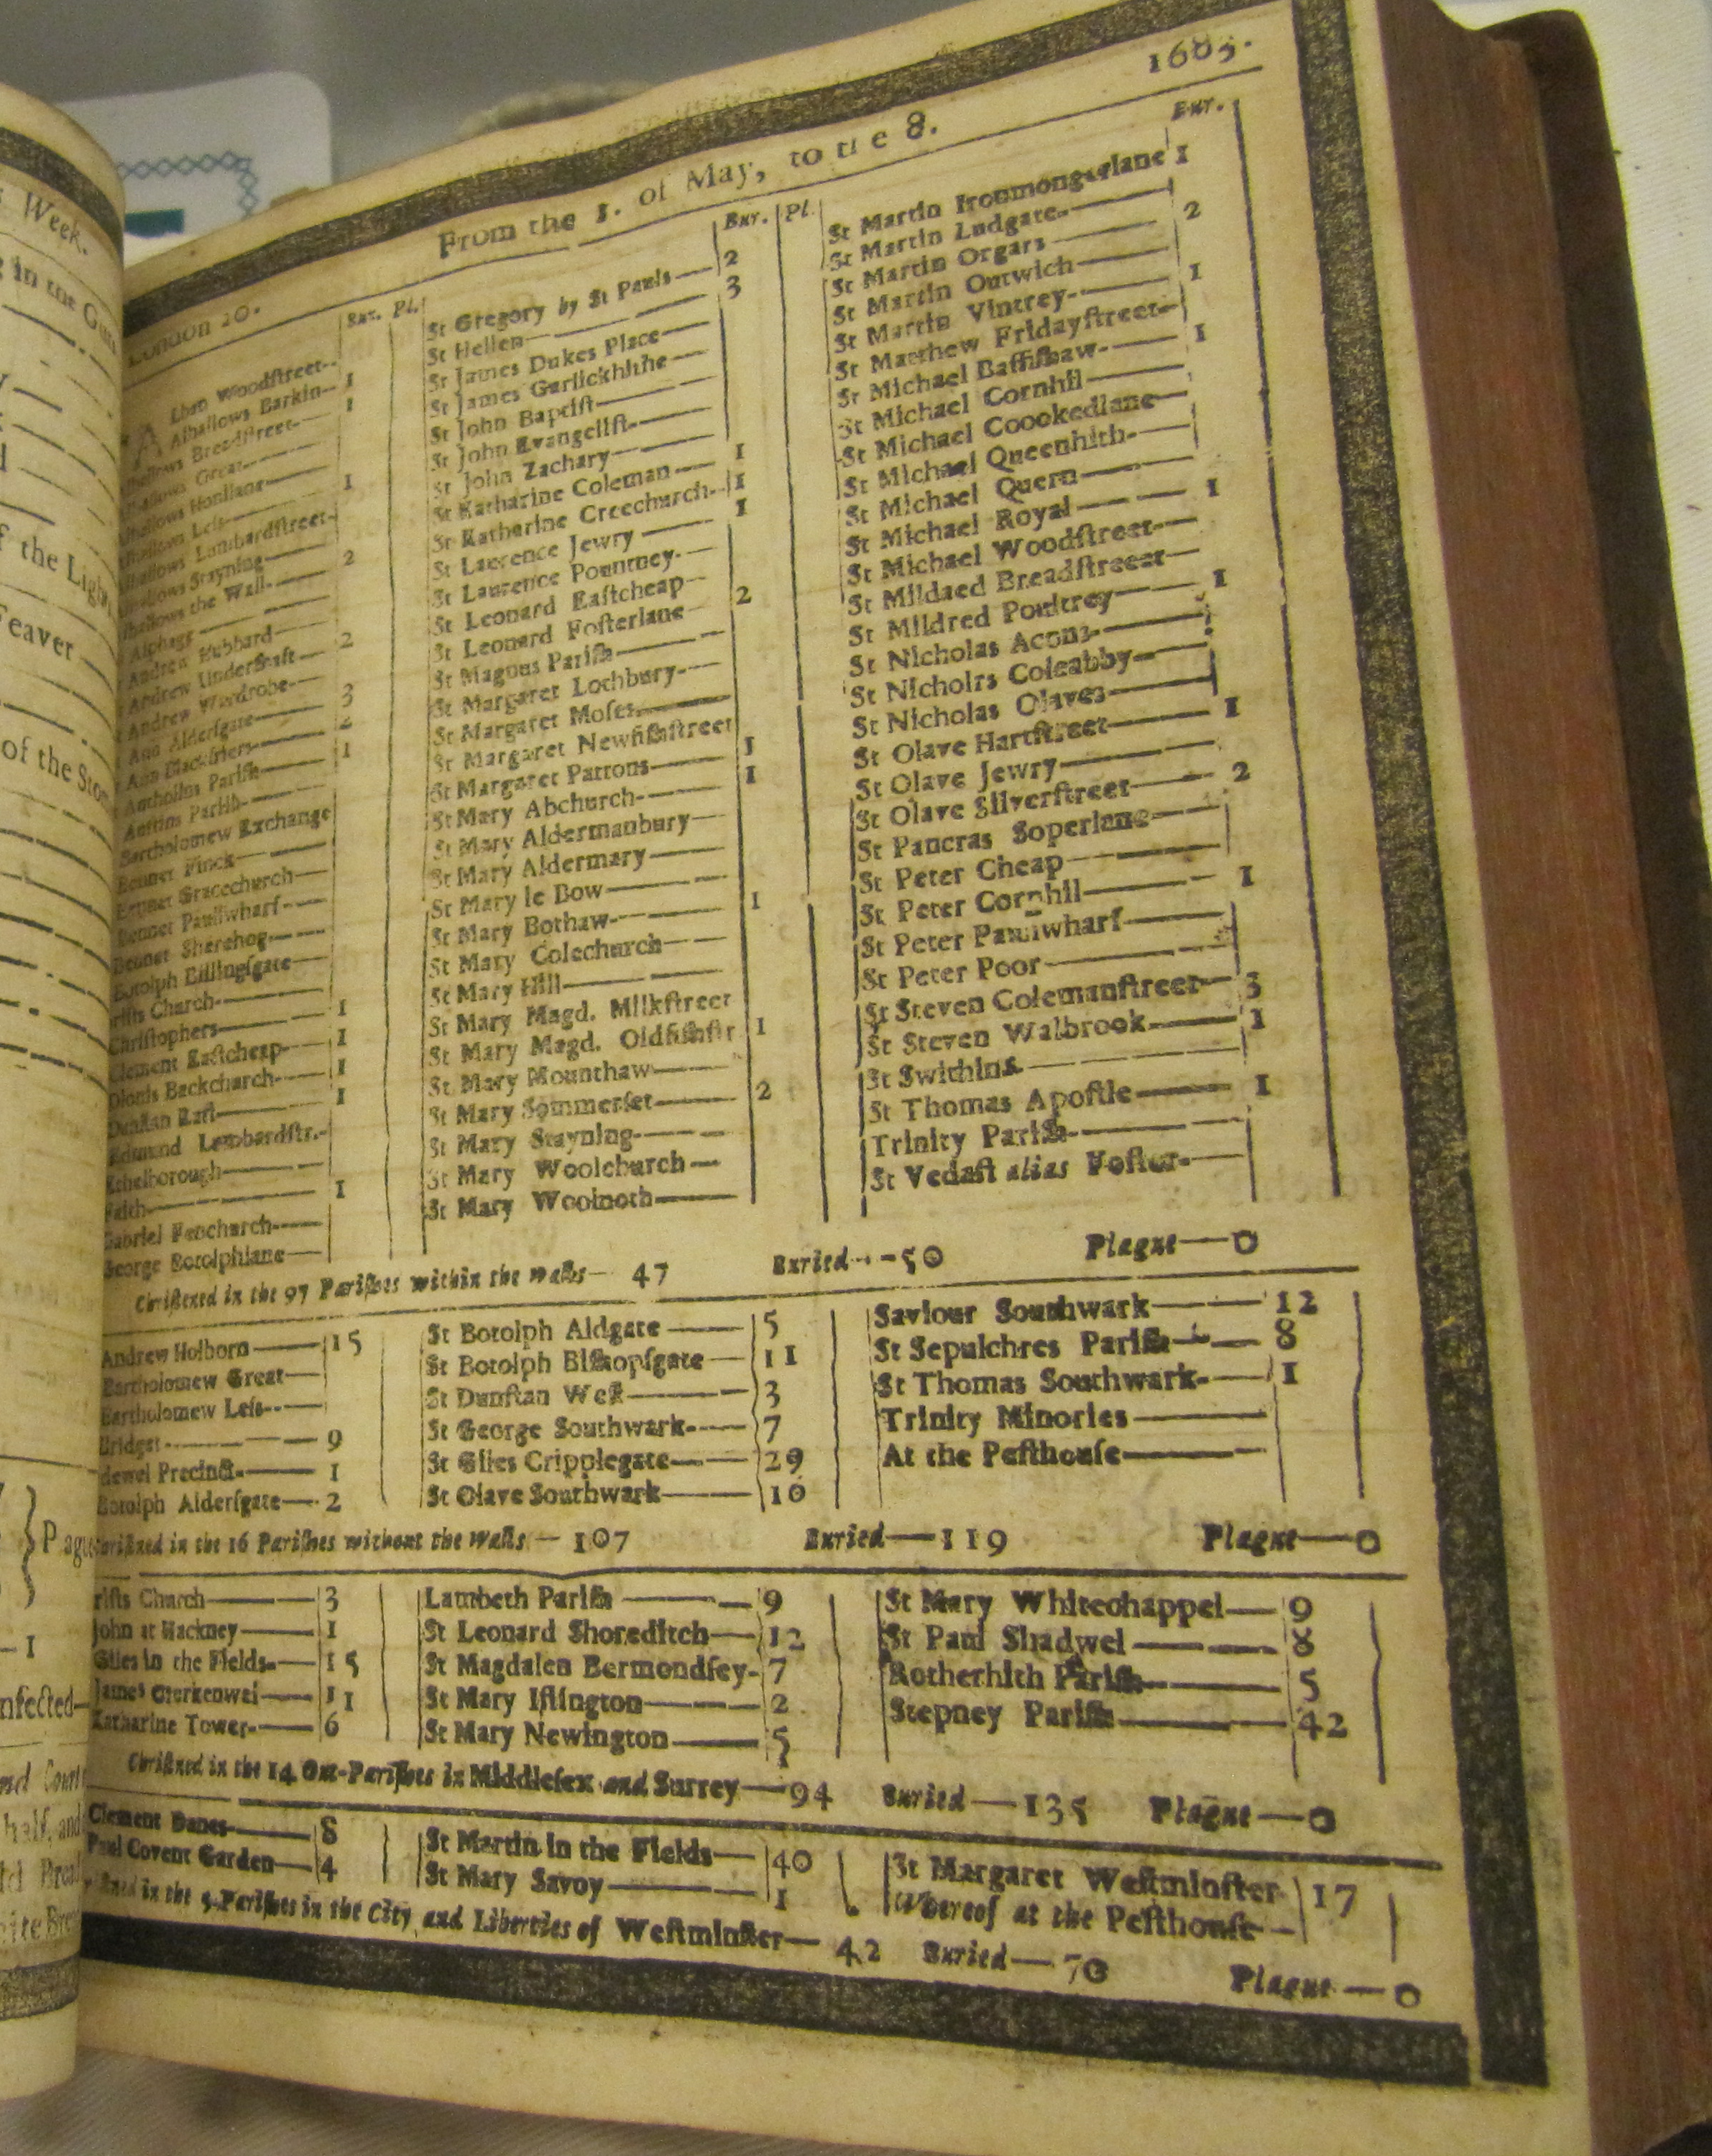 s Week.
g in the
f the Ligh
Feaver
of the Sto
Plagu
1
nfected
half, and
ite Bre
From the 1. of May, to the 8. 1665.
London 20.
Bur. Pl.
Alban Woodſtreet
Alhallows Barkin 1
hallows Breadſtreet 1
hallows Great
hallows Honilane
hallows Leſs 1
hallows Lumbardſtreet
hallows Stayning
hallows the Wall 2
Alphage
Andrew Hubbard
Andrew Underſhaft 2
Andrew Wardrobe
Ann Alderſgate 3
Ann Blackfriers 2
Antholins Pariſh 1
Auſtins Pariſh
Bartholomew Exchange
Bennet Finck
Bennet Gracechurch
Bennet Paulſwharf
Bennet Sherehog
Botolph Billingſgate
rifts Church
Chriſtophers 1
Clement Eaſtcheap 1
Dionis Backchurch 1
Dunſtan Eaſt 1
Edmund Lumbardſtr.
Ethelborough
Faith 1
Gabriel Fenchurch
George Botolphlane
Bur. Pl.
St Gregory by St Pauls 2
St Hellen 3
St James Dukes Place
St James Garlickhithe
St John Baptiſt
St John Evangeliſt
St John Zachary
St Katharine Coleman 1
St Katharine Creechurch 1
St Lawrence Jewry 1
St Laurence Pountney
St Leonard Eaſtcheap
St Leonard Foſterlane 2
St Magnus Pariſh
St Margaret Lothbury
St Margaret Moſes
St Margaret Newfiſhſtreet
St Margaret Pattons 1
St Mary Abchurch 1
St Mary Aldermanbury
St Mary Aldermary
St Mary le Bow
St Mary Bothaw 1
St Mary Colechurch
St Mary Hill
St Mary Magd. Milkſtreet
St Mary Magd. Oldfiſhſtr 1
St Mary Mounthaw
St Mary Sommerſet 2
St Mary Stayning
St Mary Woolchurch
St Mary Woolnoth
Bur.
St Martin Ironmongerlane 1
St Martin Ludgate
St Martin Orgars 2
St Martin Outwich
St Martin Vintrey 1
St Matthew Fridayſtreet
St Michael Baſſiſhaw 1
St Michael Cornhil
St Michael Coookedlane
St Michael Queenhith
St Michael Quern
St Michael Royal 1
St Michael Woodſtreet
St Mildaed Breadſtreeet
St Mildred Poultrey 1
St Nicholas Acons
St Nicholrs Coleabby
St Nicholas Olaves
St Olave Hartſtreet 1
St Olave Jewry
St Olave Silverſtreet 2
St Pancras Soperlane
St Peter Cheap
St Peter Cornhil 1
St Peter Paulſwharf
St Peter Poor
St Steven Colemanſtreet 3
St Steven Walbrook 1
St Swithins
St Thomas Apoſtle 1
Trinity Pariſh
St Vedaſt alias Foſter
Chriſtned in the 97 Pariſhes within the walls 47 Buried 50 Plague 0
Andrew Holborn 15
Bartholomew Great
Bartholomew Leſs
Bridget 9
dewel Precinct 1
Botolph Alderſgate 2
St Botolph Aldgate 5
St Botolph Biſhopſgate 11
St Dunſtan Weſt 3
St George Southwark 7
St Giles Cripplegate 29
St Olave Southwark 16
Saviour Southwark 12
St Sepulchres Pariſh 8
St Thomas Southwark 1
Trinity Minories
At the Peſthouſe
Chriſtned in the 16 Pariſhes without the Walls 107 Buried 119 Plague 0
rifts Church 3
John at Hackney 1
Giles in the Fields 15
James Clerkenwel 11
Katharine Tower 6
Lambeth Pariſh 9
St Leonard Shoreditch 12
St Magdalen Bermondſey 7
St Mary Iſlington 2
St Mary Newington 5
St Mary Whitechappel 9
St Paul Shadwel 8
Rotherhith Pariſh 5
Stepney Pariſh 42
Chriſtned in the 14 Out-Pariſhes in Middleſex and Surrey 94 Buried 135 Plague 0
Clement Danes 8
Paul Covent Garden 4
St Martin in the Fields 40
St Mary Savoy 1
St Margaret Weſtminſter 17
Whereof at the Peſthouſe
in the 5 Pariſhes in the City and Liberties of Weſtminſter 42 Buried 70 Plague 0